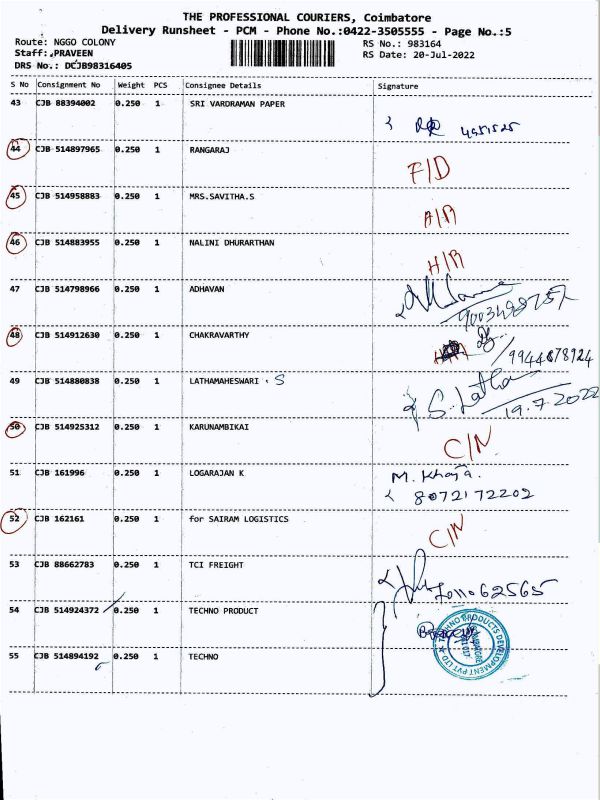 THE PROFESSIONAL COURIERS, Coimbatore
Delivery Runsheet - PCM - Phone No.:0422-3505555 - Page No.:5
Route: NGGO COLONY
RS No.: 983164
Staff: PRAVEEN
RS Date: 20-Jul-2022
DRS No.: DCJB98316405
S No Consignment No Weight PCS Consignee Details Signature
43 CJB 88394002 0.250 1 SRI VARDRAMAN PAPER
44 CJB 514897965 0.250 1 RANGARAJ F/D
45 CJB 514958883 0.250 1 MRS.SAVITHA.S
46 CJB 514883955 0.250 1 NALINI DHURARTHAN
47 CJB 514798966 0.250 1 ADHAVAN
48 CJB 514912630 0.250 1 CHAKRAVARTHY
9944678924
49 CJB 514880838 0.250 1 LATHAMAHESWARI . S S. Latha
19.7.2022
50 CJB 514925312 0.250 1 KARUNAMBIKAI C/N
51 CJB 161996 0.250 1 LOGARAJAN K M. Khaja.
8072172202
52 CJB 162161 0.250 1 for SAIRAM LOGISTICS C/N
53 CJB 88662783 0.250 1 TCI FREIGHT
54 CJB 514924372 0.250 1 TECHNO PRODUCT
TECHNO PRODUCTS DEVELOPMENT PVT LTD
55 CJB 514894192 0.250 1 TECHNO